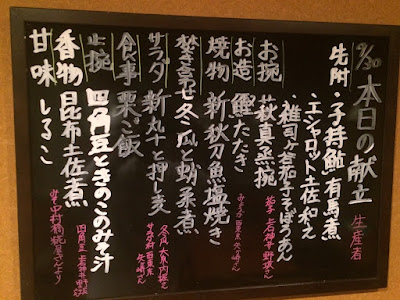 9/30 本日の献立 生産者
先附 ・子持鮎有馬煮
・エシャロット土佐和え
・雑司ヶ谷茄子そぼろあん
茄子 石神井
お椀 萩真蒸椀
お造 鰹たたき
焼物 新秋刀魚塩焼き
焚き合せ 冬瓜と蛸柔煮
サラダ 新丸十と押し麦
食事 栗ご飯
止椀 四角豆ときのこのみそ汁
四角豆 石神井
香物 昆布土佐煮
甘味 しるこ